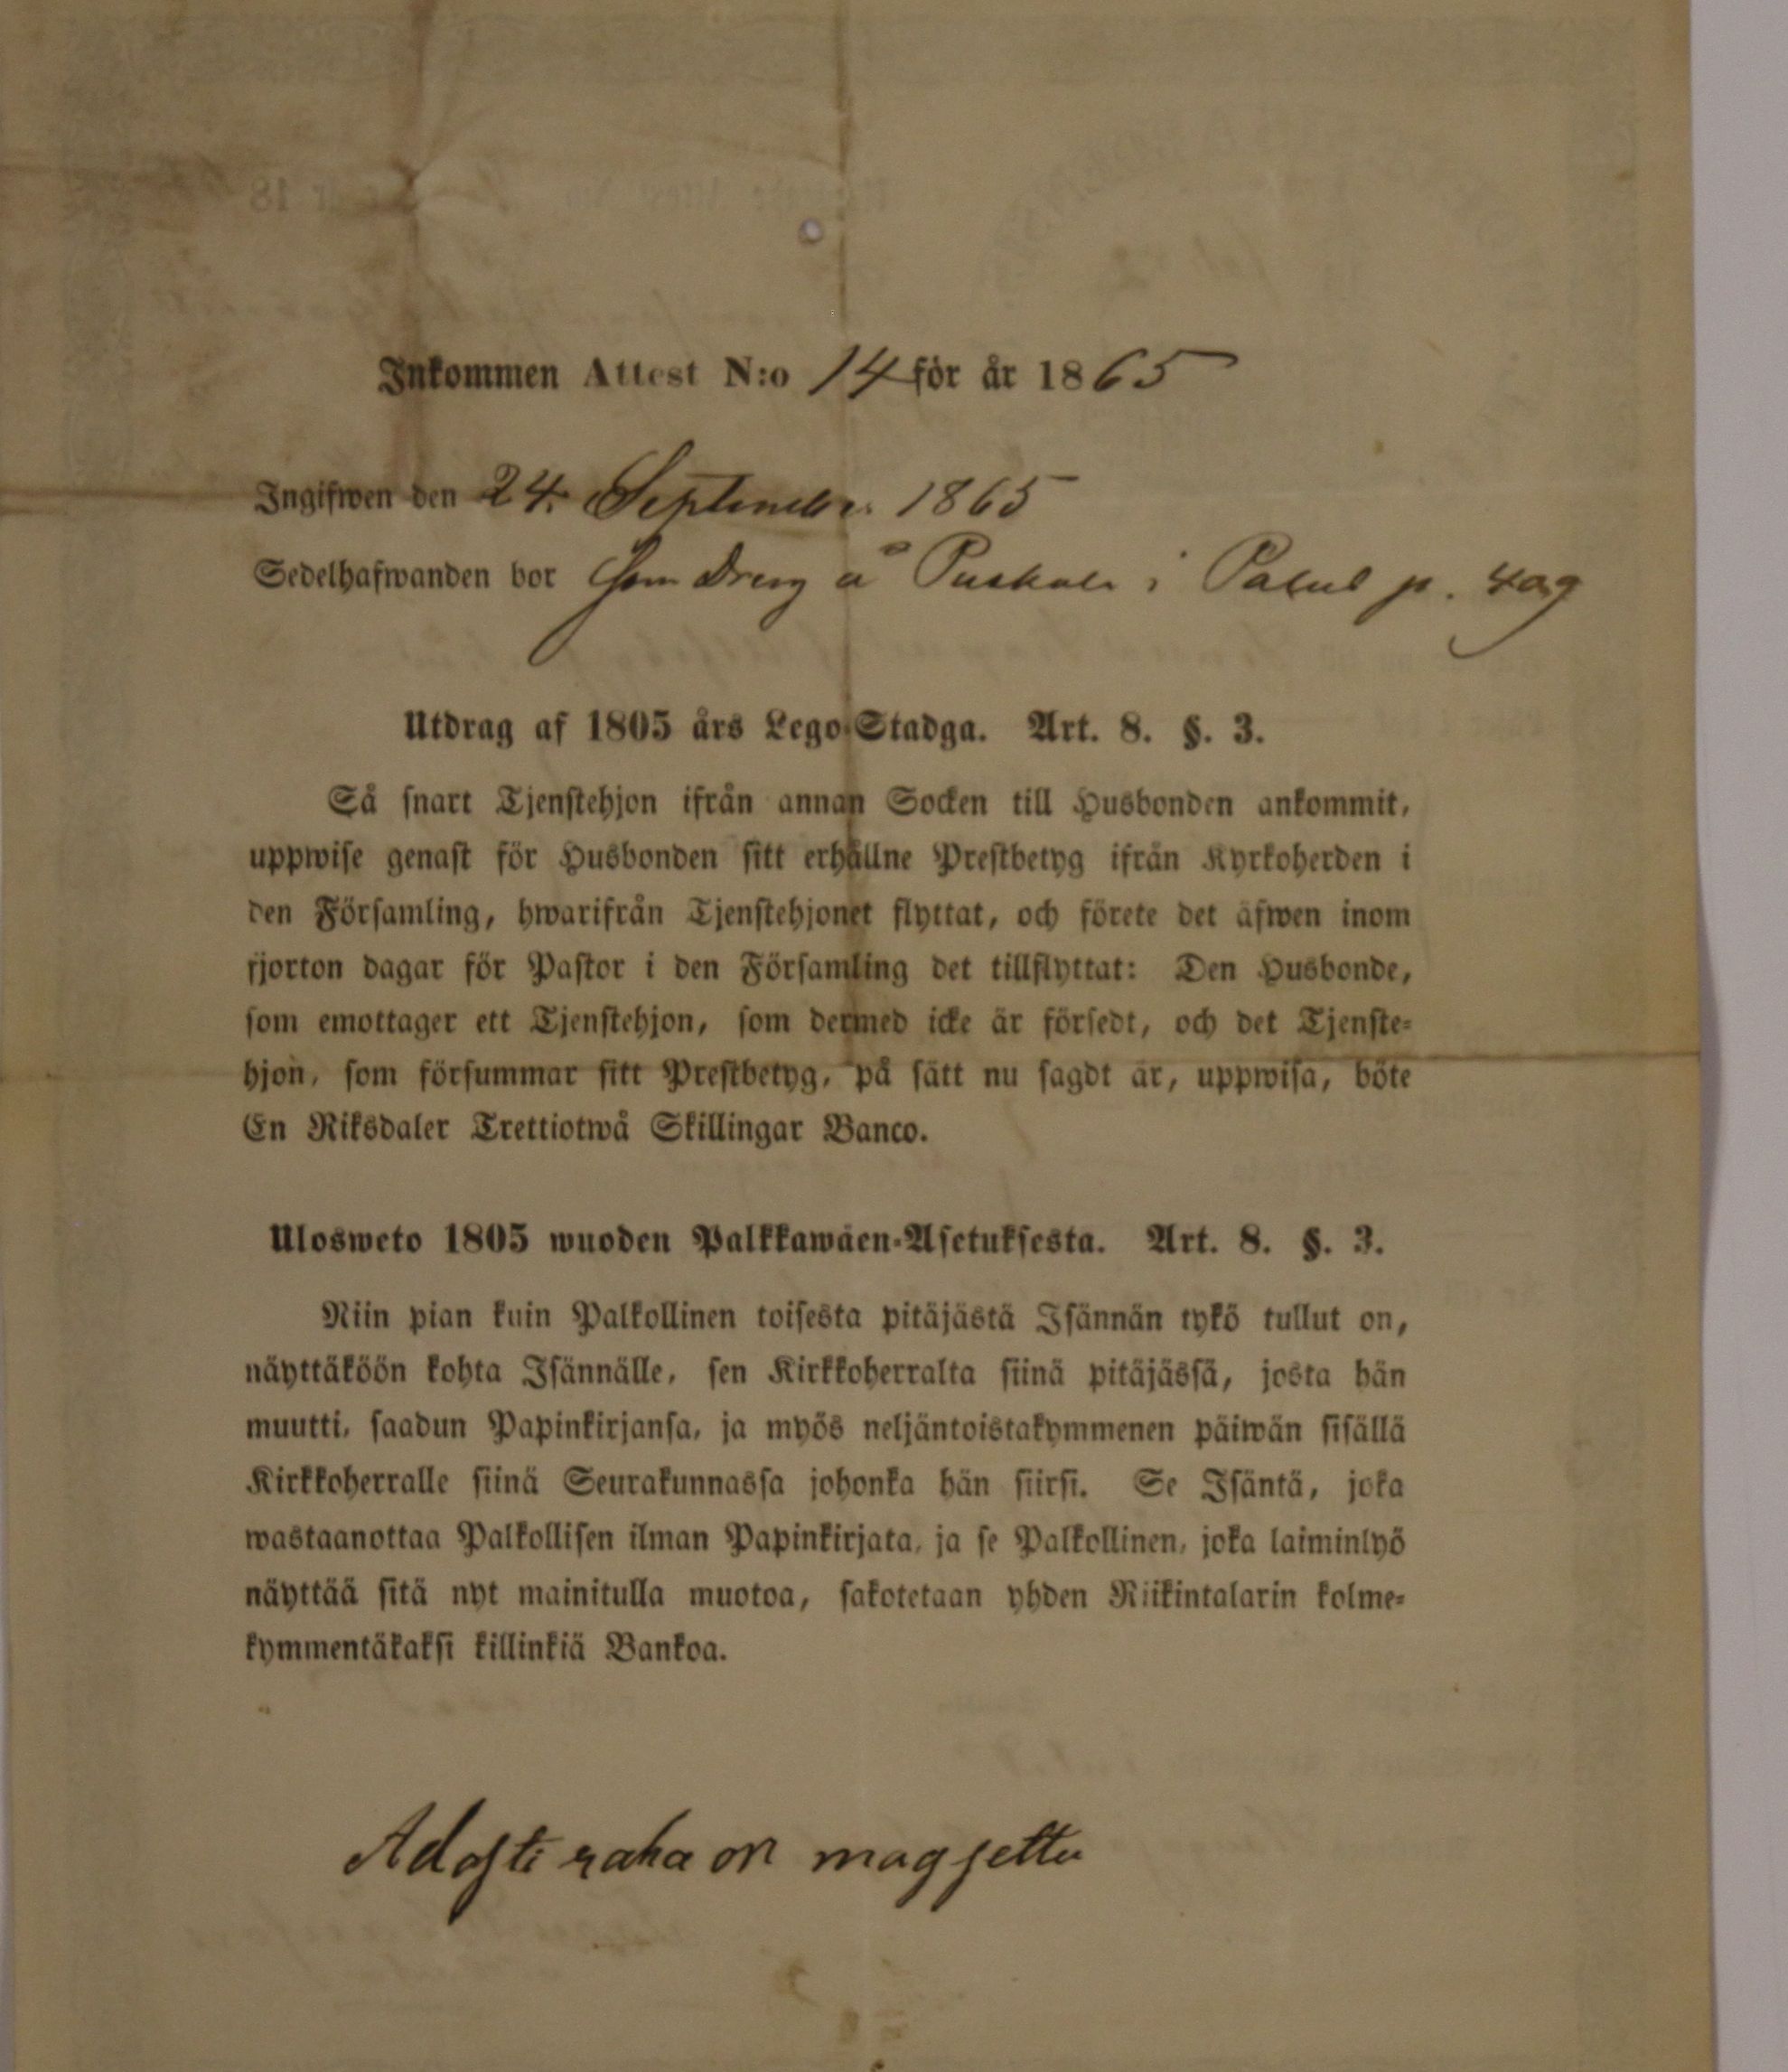 Inkommen Attest N:o 14 för år 1865
Ingifwen den 24. September 1865
Sedelhafwanden bor som Dreng å Puskala i p. 409
Utdrag af 1805 års Lego-Stadga. Art. 8. §. 3.
Så snart Tjenstehjon ifrån annan Socken till Husbonden ankommit,
uppwise genast för Husbonden sitt erhållne Prestbetyg ifrån Kyrkoherden i
den Församling, hwarifrån Tjenstehjonet flyttat, och förete det äfwen inom
fjorton dagar för Pastor i den Församling det tillflyttat: Den Husbonde,
som emottager ett Tjenstehjon, som dermed icke är försedt, och det Tjenste-
hjon, som försummar sitt Prestbetyg, på sätt nu sagdt är, uppwisa, böte
En Riksdaler Trettiotwå Skillingar Banco.
Ulosweto 1805 wuoden Palkkawäen-Asetuksesta. Art. 8. §. 3.
Niin pian kuin Palkollinen toisesta pitäjästä Isännän tykö tullut on,
näyttäköön kohta Isännälle, sen Kirkkoherralta siinä pitäjässä, josta hän
muutti, saadun Papinkirjansa, ja myös neljäntoistakymmenen päiwän sisällä
Kirkkoherralle siinä Seurakunnassa johonka hän siirsi. Se Isäntä, joka
wastaanottaa Palkollisen ilman Papinkirjata, ja se Palkollinen, joka laiminlyö
näyttää sitä nyt mainitulla muotoa, sakotetaan yhden Riikintalarin kolme-
kymmentäkaksi killinkiä Bankoa.
Adasti raha on magsettu